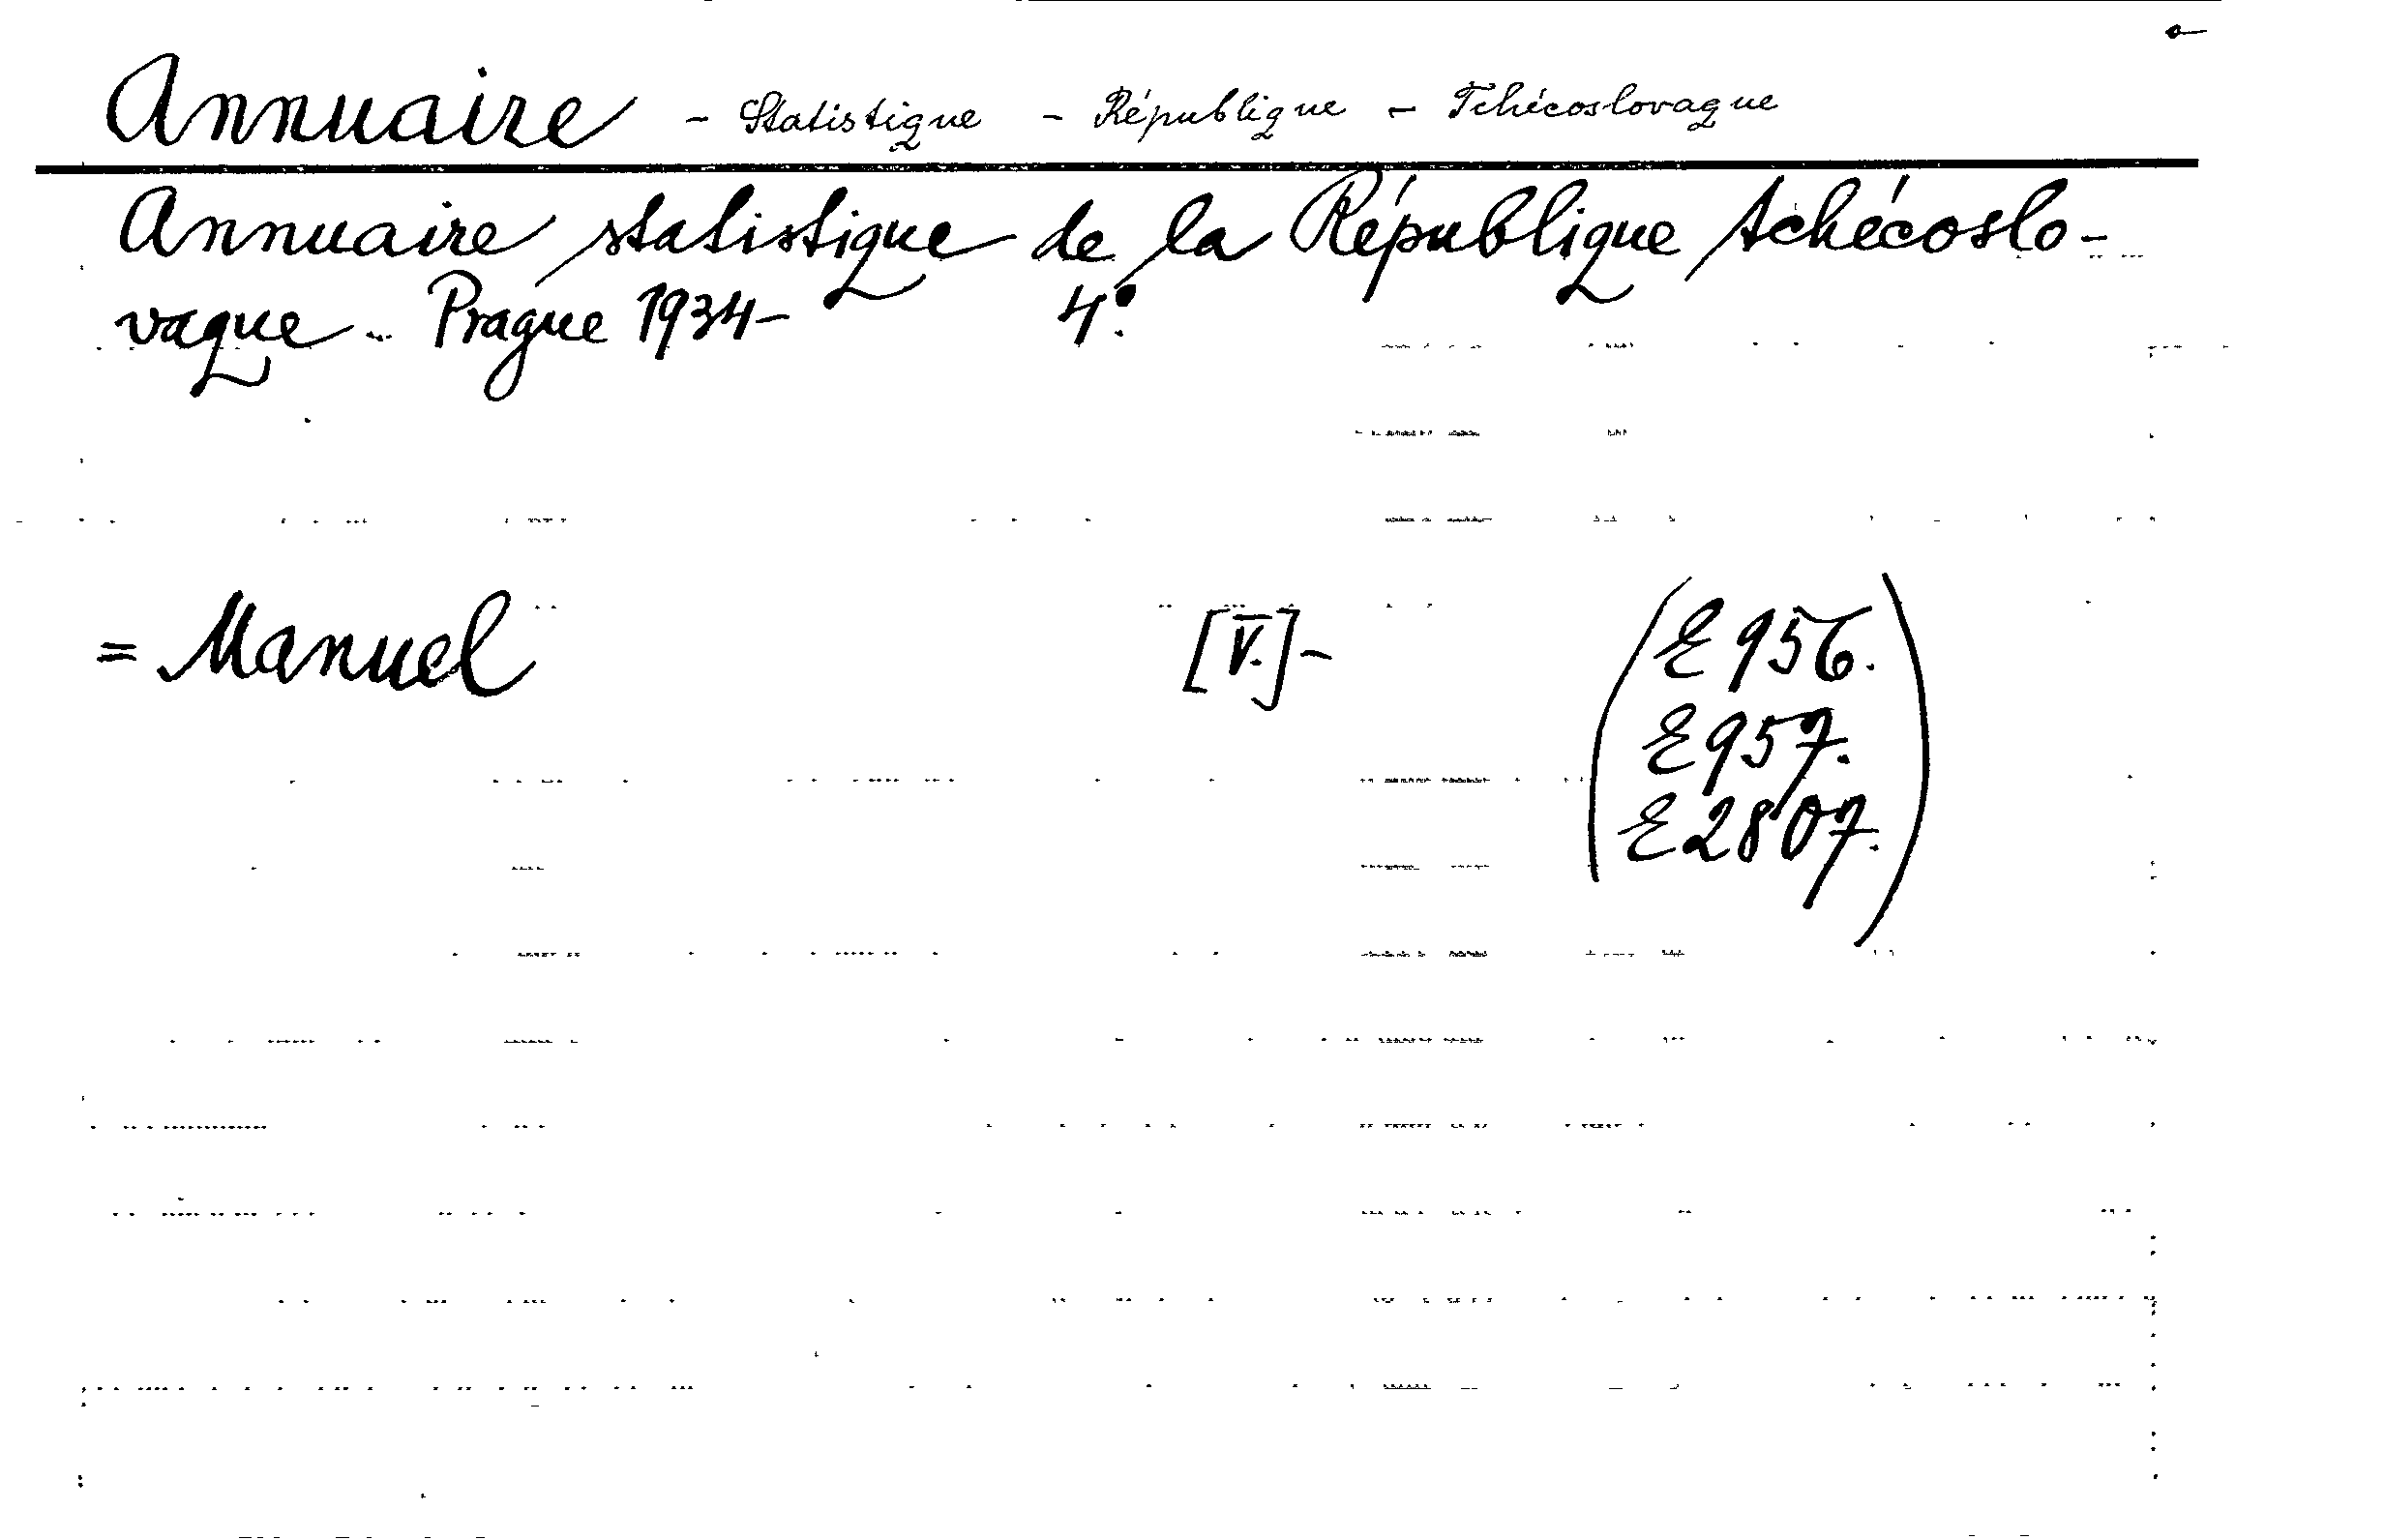 Annuaire - Statistique - République - Tchécoslovaque
Annuaire statistique de la République tchécoslo-
vaque - Prague 1934- 4°.
= Manuel [V.]- (E 956.
E 957.
E 2807.)